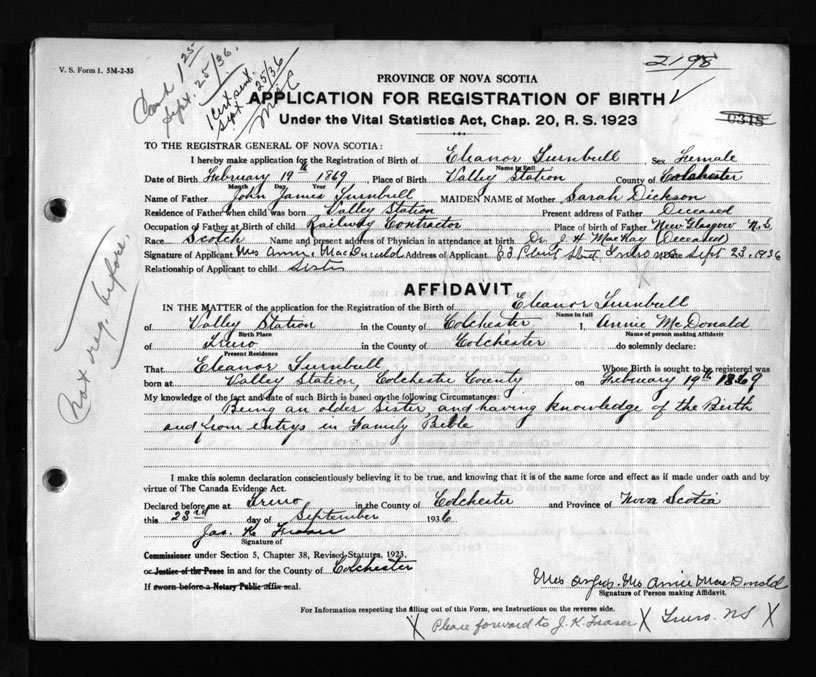 V. S. Form 1. 5M-2-35
Card 1 25
Sept. 25/36.
1 Cert. sent.
Sept. 25/36
Mac C
2198
0348
PROVINCE OF NOVA SCOTIA
APPLICATION FOR REGISTRATION OF BIRTH
Under the Vital Statistics Act, Chap. 20, R. S. 1923
TO THE REGISTRAR GENERAL OF NOVA SCOTIA:
I hereby make application for the Registration of Birth of Eleanor Turnbull Sex Female
Name in Full
Date of Birth February 19th 1869 Place of Birth Valley Station County of Colchester
Month Day Year
Name of Father John James Turnbull MAIDEN NAME of Mother Sarah Dickson
Residence of Father when child was born Valley Station Present address of Father Deceased
Occupation of Father at Birth of child Railway Contractor Place of Birth of Father New Glasgow N.S.
Race Scotch Name and present address of Physician in attendance at birth Dr. J. H. MacKay (Deceased)
Signature of Applicant Mrs Annie MacDonald Address of Applicant 63 Street Truro Date Sept 23. 1936
Relationship of Applicant to child Sister
AFFIDAVIT
IN THE MATTER of the application for the Registration of the Birth of Eleanor Turnbull
Name in full
of Valley Station in the County of Colchester I, Annie McDonald
Birth Place Name of person making Affidavit
of Truro in the County of Colchester do solemnly declare:
Present Residence
That Eleanor Turnbull Whose Birth is sought to be registered was
born at Valley Station, Colchester County on February 19th 1869
My knowledge of the fact and date of such Birth is based on the following Circumstances:
Being an older sister, and having knowledge of the Birth
and from entrys in Family Bible
Not reg. before
I make this solemn declaration conscientiously believing it to be true, and knowing that it is of the same force and effect as if made under oath and by
virtue of The Canada Evidence Act.
Declared before me at Truro in the County of Colchester and Province of Nova Scotia
this 23rd day of September 1936
Jas. K. Fraser
Signature of
Commissioner under Section 5, Chapter 38, Revised Statutes, 1923,
or Justice of the Peace in and for the County of Colchester
If sworn before a Notary Public affix seal.
Mrs Angus. Mrs Annie MacDonald
Signature of Person making Affidavit.
For Information respecting the filling out of this Form, see Instructions on the reverse side.
X Please forward to J. K. Fraser X Truro. NS X